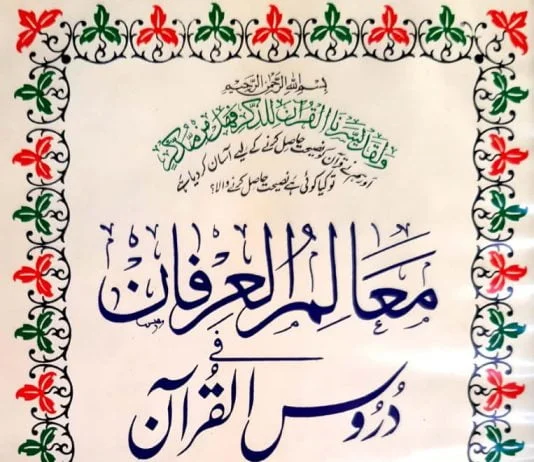 بِسْمِ اللهِ الرَّحْمٰنِ الرَّحِيْمِ
وَلَقَدْ يَسَّرْنَا الْقُرْاٰنَ لِلذِّكْرِ فَهَلْ مِنْ مُّدَّكِرٍ
اور ہم نے قرآن کو نصیحت حاصل کرنے کے لیے آسان کر دیا ہے
تو کیا کوئی ہے نصیحت حاصل کرنے والا؟
مَعَالِمُ الْعِرْفَان
فِي
دُرُوسِ الْقُرْآن